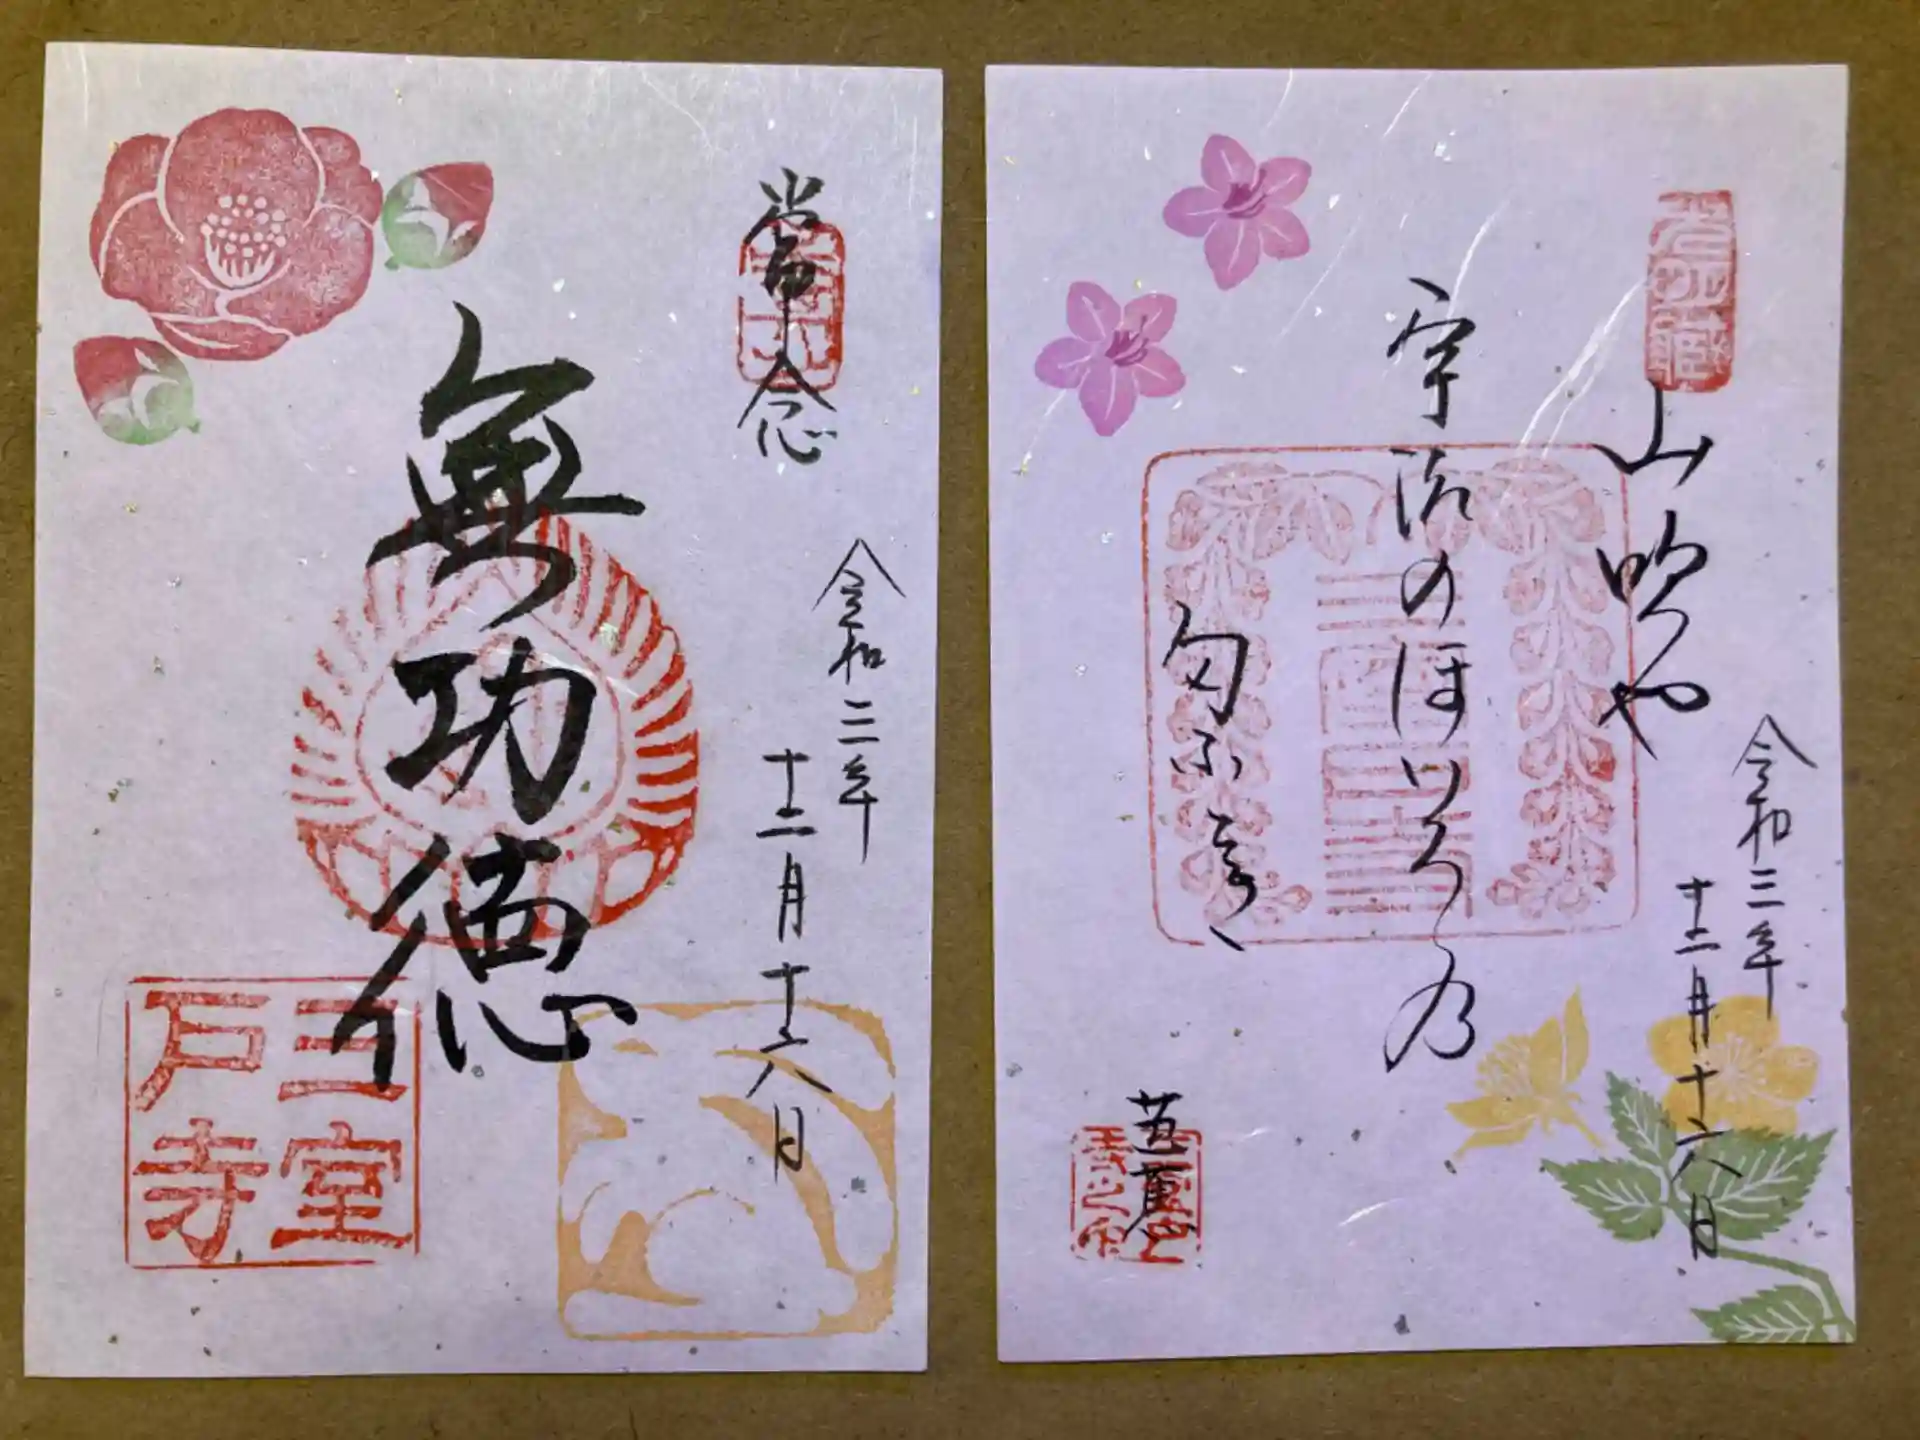 常念
令和二年
十二月十八日
無功徳
三室
戸寺
山吹や
令和三年
十二月十八日
宇治のほいろ乃
匂ふとき
芭蕉